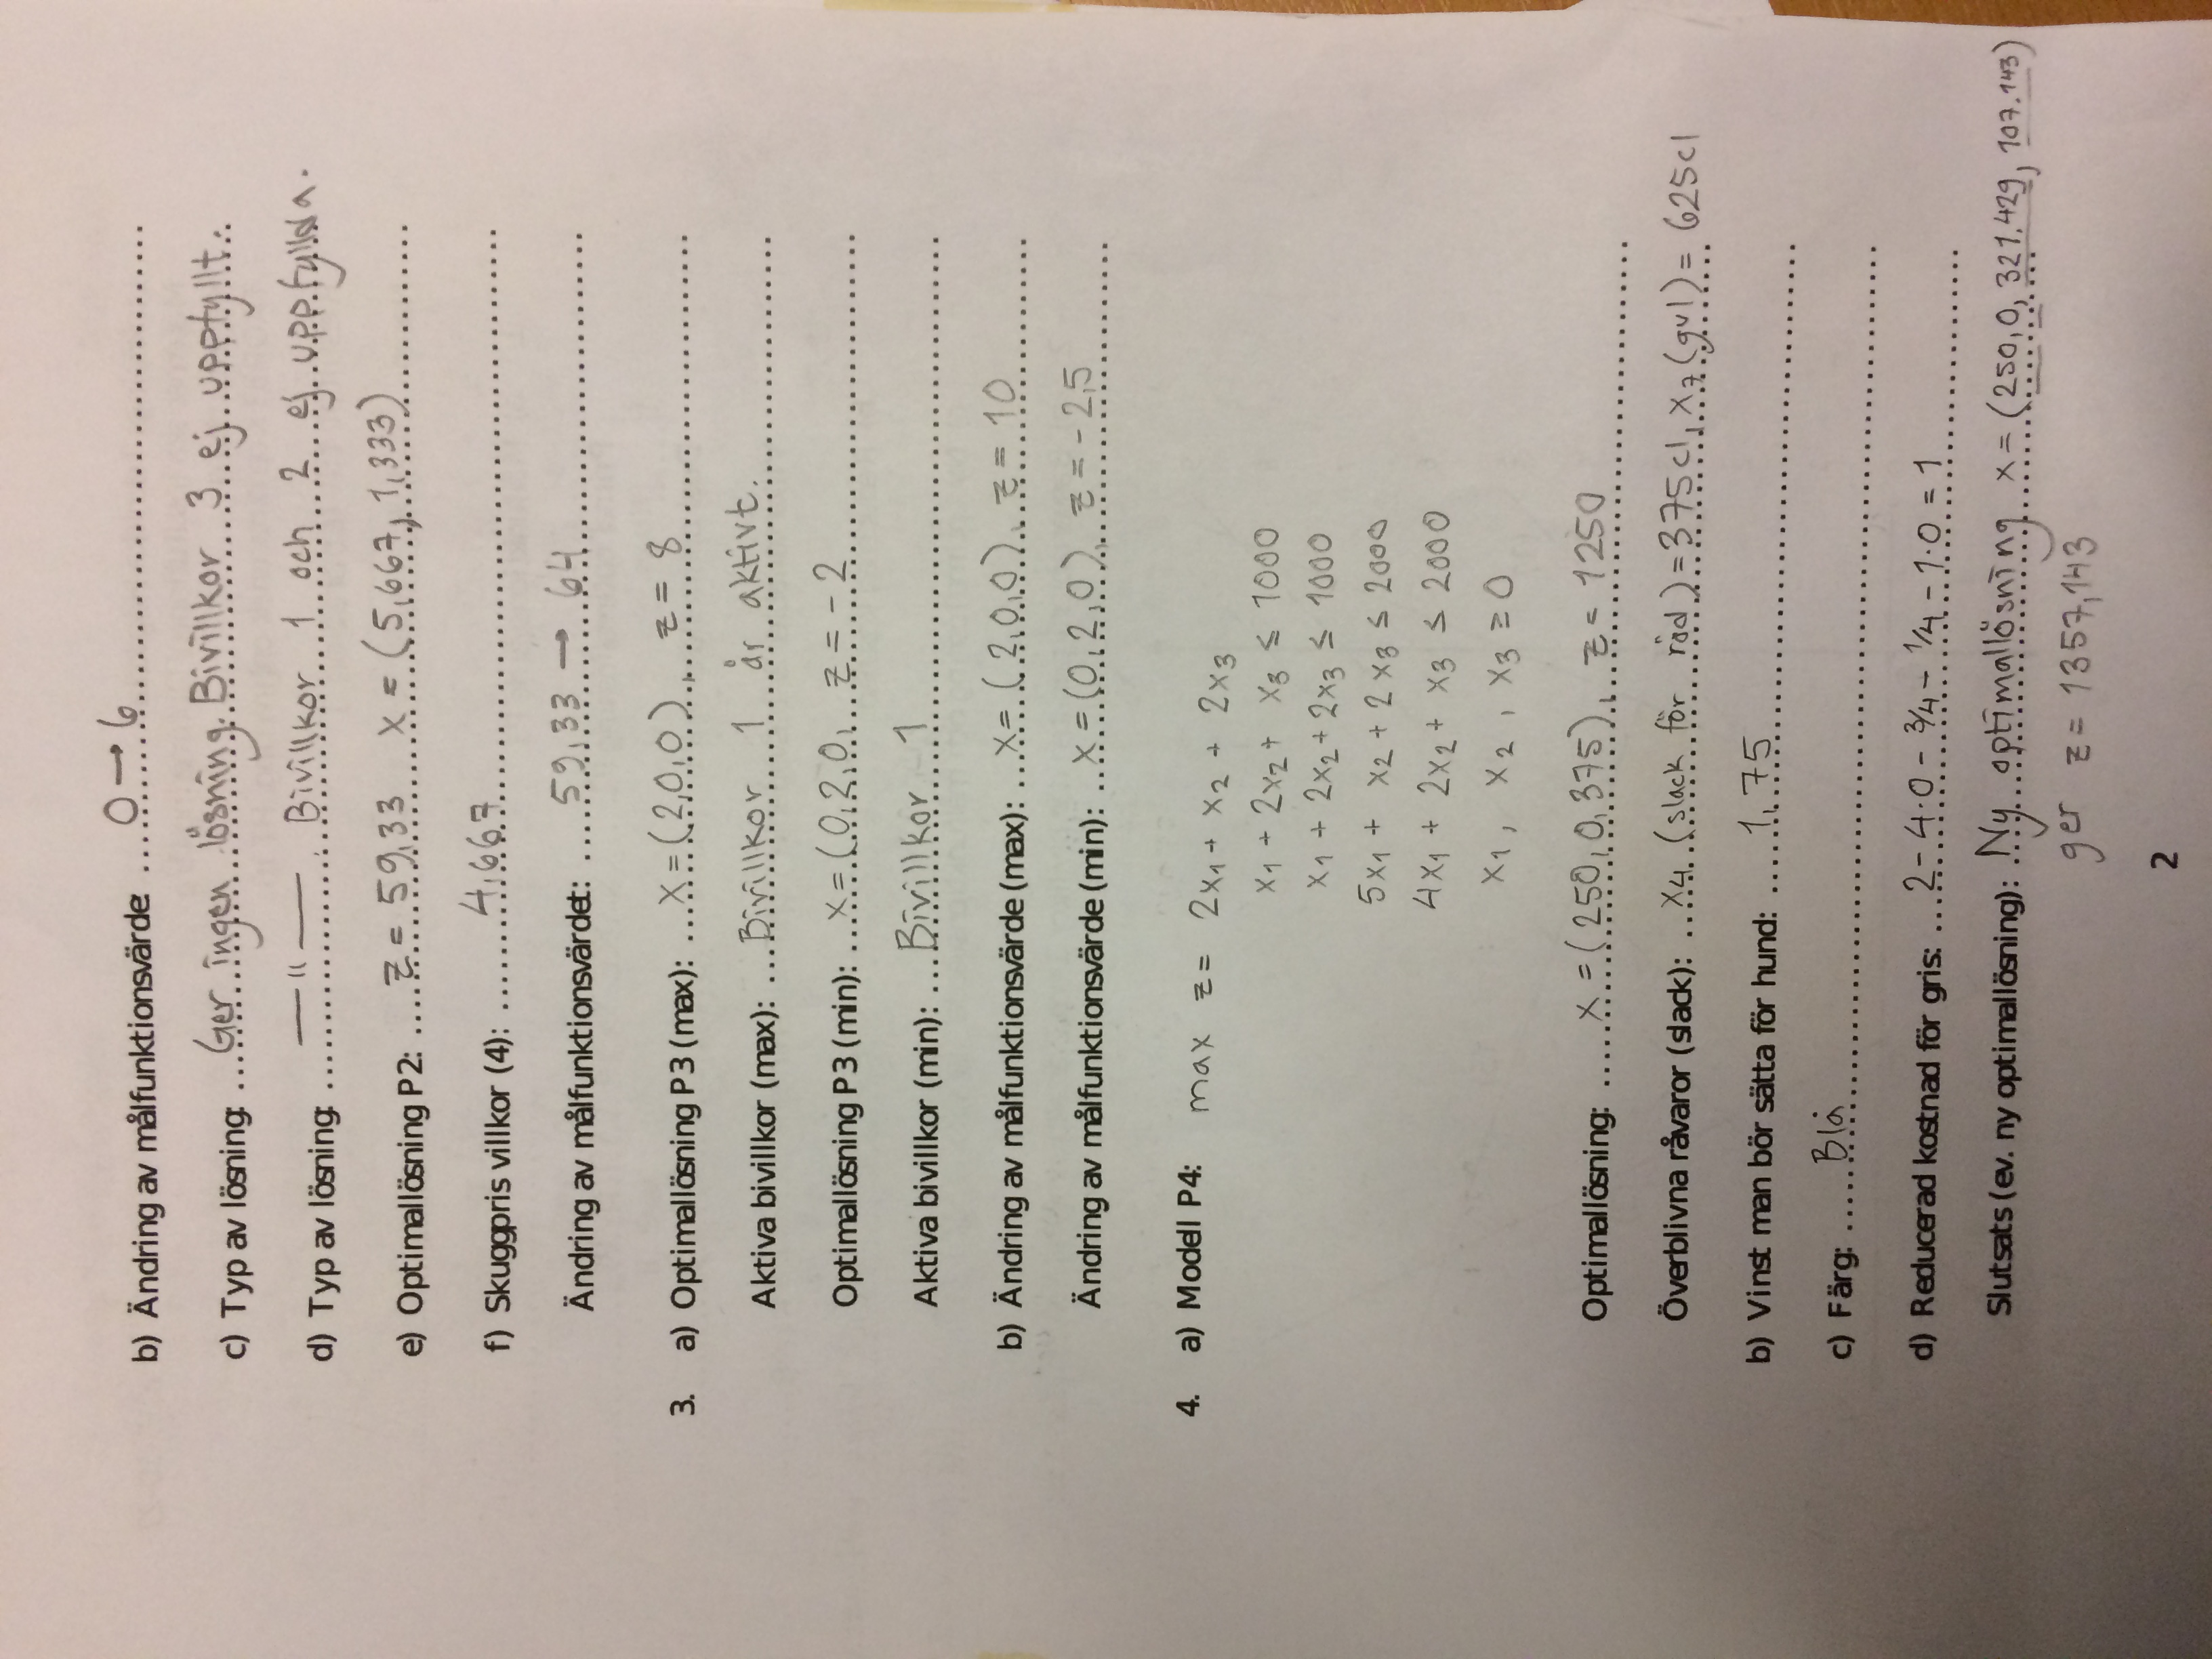 b) Ändring av målfunktionsvärde: 0 → 6
c) Typ av lösning: Ger ingen lösning. Bivillkor 3 ej uppfyllt.
d) Typ av lösning: —"— . Bivillkor 1 och 2 ej uppfyllda.
e) Optimallösning P2: z = 59,33 x = (5,667, 1,333)
f) Skuggpris villkor (4): 4,667
Ändring av målfunktionsvärdet: 59,33 → 64
3. a) Optimallösning P3 (max): x = (2,0,0), z = 8
Aktiva bivillkor (max): Bivillkor 1 är aktivt.
Optimallösning P3 (min): x = (0,2,0, z = -2
Aktiva bivillkor (min): Bivillkor 1
b) Ändring av målfunktionsvärde (max): x = (2,0,0), z = 10
Ändring av målfunktionsvärde (min): x = (0,2,0), z = -2,5
4. a) Modell P4: max z = 2x₁ + x₂ + 2x₃
x₁ + 2x₂ + x₃ ≤ 1000
x₁ + 2x₂ + 2x₃ ≤ 1000
5x₁ + x₂ + 2x₃ ≤ 2000
4x₁ + 2x₂ + x₃ ≤ 2000
x₁, x₂, x₃ ≥ 0
Optimallösning: x = (250, 0, 375), z = 1250
Överblivna råvaror (slack): x₄ (slack för röd) = 375 cl, x₇ (gul) = 625 cl
b) Vinst man bör sätta för hund: 1,75
c) Färg: Blå
d) Reducerad kostnad för gris: 2 - 4·0 - 3/4 - 1/4 - 1·0 = 1
Slutsats (ev. ny optimallösning): Ny optimallösning x = (250, 0, 321.429, 107.143)
ger z = 1357,143
2